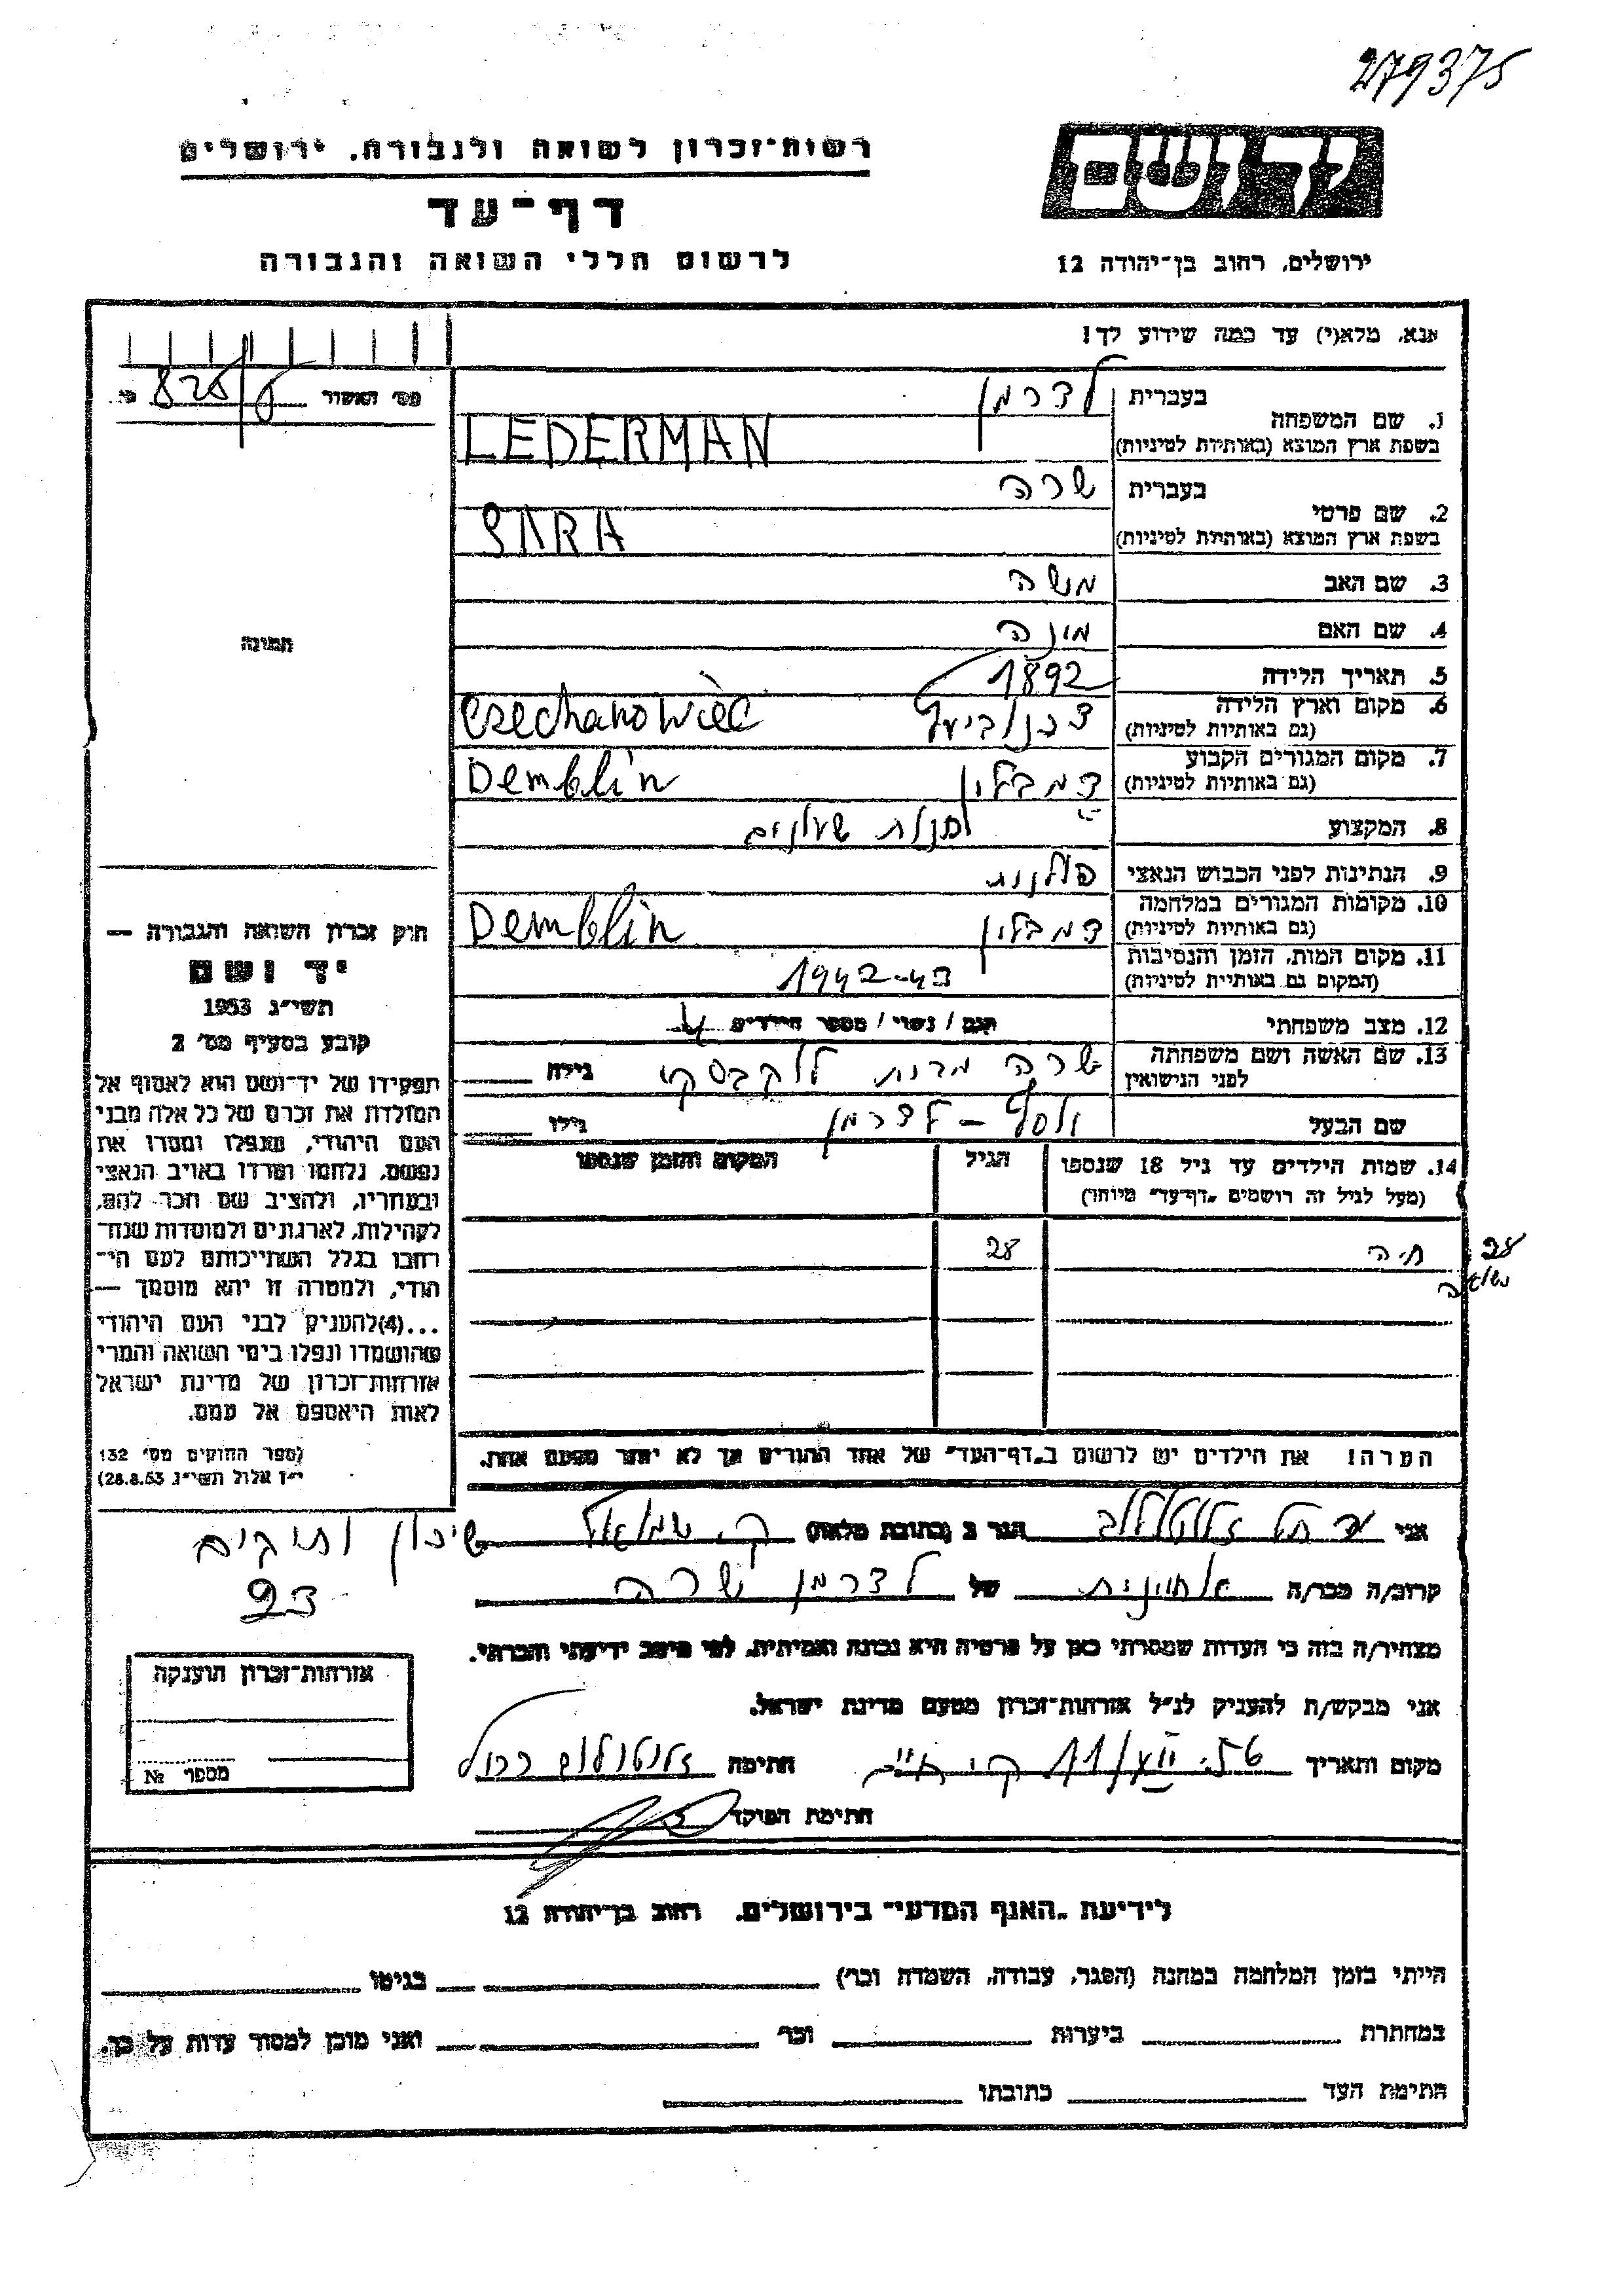 279375
רשות־זכרון לשואה ולגבורה. ירושלים
דף־עד
לרשום חללי השואה והגבורה
יד ושם
ירושלים, רחוב בן־יהודה 12
אנא, מלא(י) עד כמה שידוע לך!
מס׳ האשור
825/
בעברית לדרמן
1. שם המשפחה
בשפת ארץ המוצא (באותיות לטיניות) LEDERMAN
בעברית שרה
2. שם פרטי
בשפת ארץ המוצא (באותיות לטיניות) SARA
3. שם האב משה
4. שם האם
5. תאריך הלידה 1892
6. מקום וארץ הלידה
(גם באותיות לטיניות) Czechanowiec
7. מקום המגורים הקבוע
(גם באותיות לטיניות) דמבלין Demblin
8. המקצוע שעונים
9. הנתינות לפני הכבוש הנאצי
10. מקומות המגורים במלחמה
(גם באותיות לטיניות) דמבלין Demblin
11. מקום המות, הזמן והנסיבות
(המקום גם באותיות לטיניות) 1942-43
12. מצב משפחתי רווק / נשוי / מספר הילדים
13. שם האשה ושם משפחתה
לפני הנישואין שרה מבית גילה
שם הבעל לדרמן גילו
14. שמות הילדים עד גיל 18 שנספו
(מעל לגיל זה רושמים „דף־עד״ מיוחד)
הגיל
המקום והזמן שנספו
חיה 28
28
נשואה
הערה! את הילדים יש לרשום ב„דף־העד״ של אחד ההורים אך לא יותר מפעם אחת.
תמונה
חוק זכרון השואה והגבורה —
יד ושם
תשי״ג 1953
קובע בסעיף מס׳ 2
תפקידו של יד־ושם הוא לאסוף אל
המולדת את זכרם של כל אלה מבני
העם היהודי, שנפלו ומסרו את
נפשם, נלחמו ומרדו באויב הנאצי
ובעוזריו, ולהציב שם וזכר להם,
לקהילות, לארגונים ולמוסדות שנח־
רבו בגלל השתייכותם לעם הי־
הודי, ולמטרה זו יהא מוסמך —
...(4)להעניק לבני העם היהודי
שהושמדו ונפלו בימי השואה והמרי
אזרחות־זכרון של מדינת ישראל
לאות היאספם אל עמם.
(ספר החוקים מס׳ 132
י״ז אלול תשי״ג 28.8.53)
אני הגר ב (כתובת מלאה) ק. שמואל שיכון ותיקים
23
קרוב/ה מכר/ה אחיינית של לדרמן שרה
מצהיר/ה בזה כי העדות שמסרתי כאן על פרטיה היא נכונה ואמיתית, לפי מיטב ידיעתי והכרתי.
אני מבקש/ת להעניק לנ״ל אזרחות־זכרון מטעם מדינת ישראל.
מקום ותאריך חתימה
חתימת הפוקד
אזרחות־זכרון הוענקה
מספר №
לידיעת „האגף המדעי״ בירושלים. רחוב בן־יהודה 12
הייתי בזמן המלחמה במחנה (הסגר, עבודה, השמדה וכר׳) בגיטו
במחתרת ביערות וכר׳ ואני מוכן למסור עדות על כך.
חתימת העד כתובתו